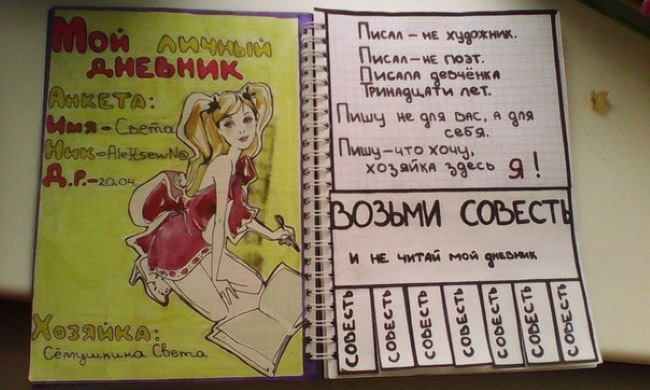 Мой личный
дневник
Анкета:
Имя-Света
Ник-AleXsewN@
Д.Р.-20.04.
Хозяйка:
Сёмушкина Света
Писал-не художник.
Писал-не поэт.
Писала девчёнка
Тринадцати лет.
Пишу не для вас, а для
себя.
Пишу-что хочу,
хозяйка здесь Я!
ВОЗЬМИ СОВЕСТЬ
и не читай мой дневник
СОВЕСТЬ
СОВЕСТЬ
СОВЕСТЬ
СОВЕСТЬ
СОВЕСТЬ
СОВЕСТЬ
СОВЕСТЬ